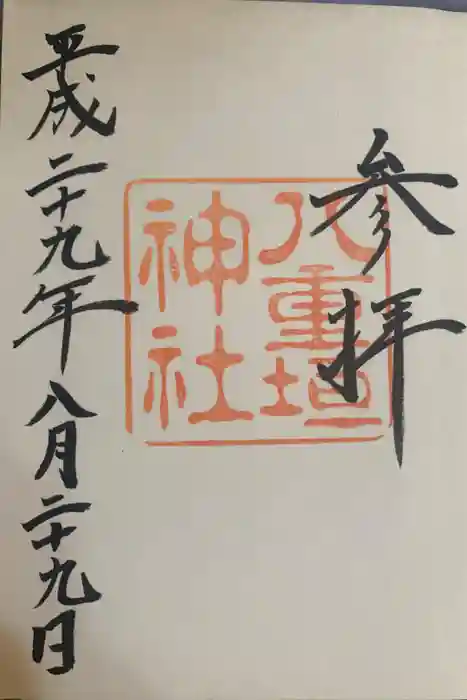 参拝
八重垣
神社
平成二十九年八月二十九日